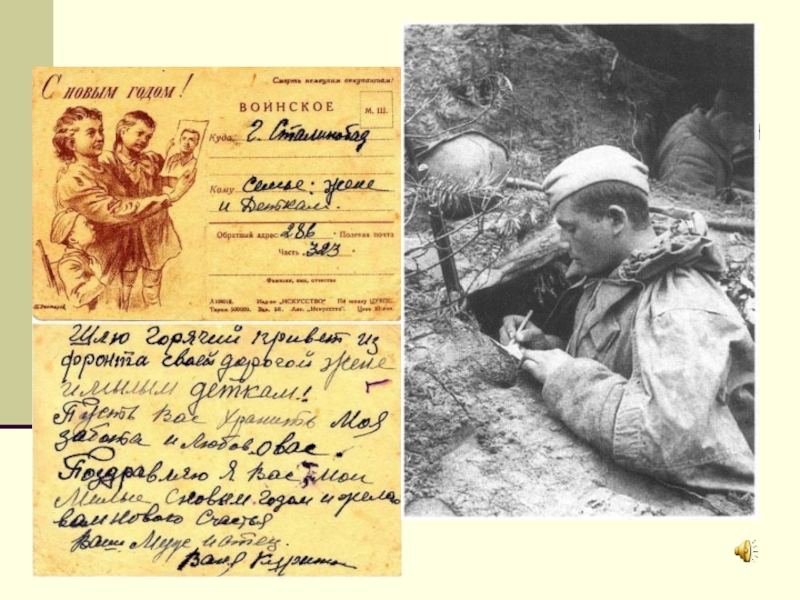 С новым годом!
Смерть немецким оккупантам!
ВОИНСКОЕ
М. Ш.
Куда: г. Сталинобад
Кому Семье: жене
и Деткам.
Обратный адрес: 286 Полевая почта
Часть 323
Фамилия, имя, отчество
Изд-во „ИСКУССТВО"
Тираж 500000.
Шлю Горячий привет из
фронта своей дорогой жене
и милым деткам!
Пусть Вас хранить Моя
забота и Любов о вас.
Поздравляю Я Вас, Мои
Милые, с новым годом и желаю
вам нового счастья
Ваш Муж и отец.
Валя